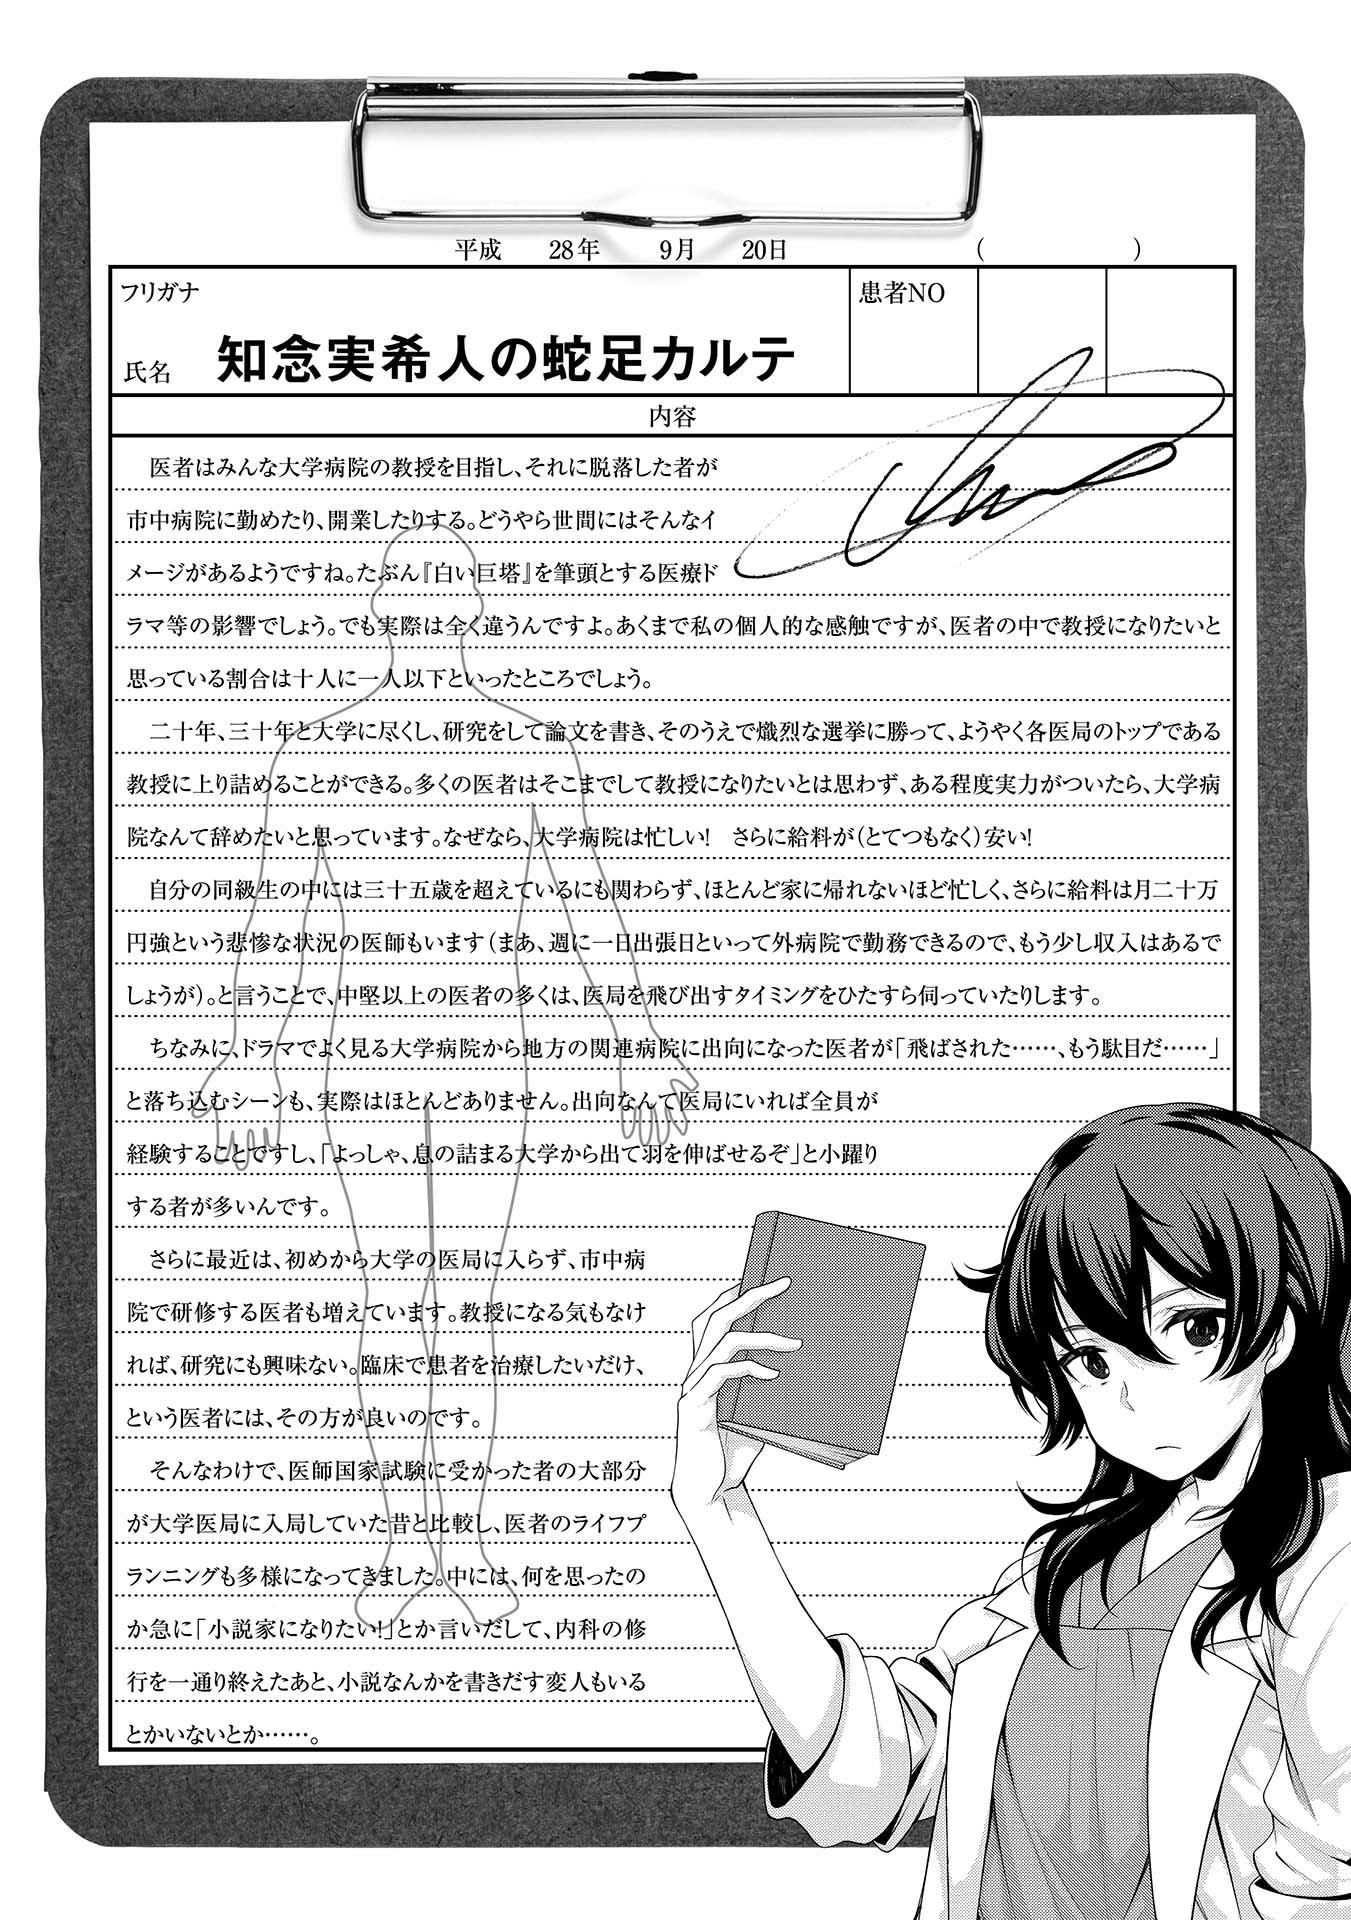 平成 28年 9月 20日 ( )
フリガナ
患者NO
氏名 知念実希人の蛇足カルテ
内容
医者はみんな大学病院の教授を目指し、それに脱落した者が
市中病院に勤めたり、開業したりする。どうやら世間にはそんなイ
メージがあるようですね。たぶん『白い巨塔』を筆頭とする医療ド
ラマ等の影響でしょう。でも実際は全く違うんですよ。あくまで私の個人的な感触ですが、医者の中で教授になりたいと
思っている割合は十人に一人以下といったところでしょう。
二十年、三十年と大学に尽くし、研究をして論文を書き、そのうえで熾烈な選挙に勝って、ようやく各医局のトップである
教授に上り詰めることができる。多くの医者はそこまでして教授になりたいとは思わず、ある程度実力がついたら、大学病
院なんて辞めたいと思っています。なぜなら、大学病院は忙しい! さらに給料が(とてつもなく)安い!
自分の同級生の中には三十五歳を超えているにも関わらず、ほとんど家に帰れないほど忙しく、さらに給料は月二十万
円強という悲惨な状況の医師もいます(まあ、週に一日出張日といって外病院で勤務できるので、もう少し収入はあるで
しょうが)。と言うことで、中堅以上の医者の多くは、医局を飛び出すタイミングをひたすら伺っていたりします。
ちなみに、ドラマでよく見る大学病院から地方の関連病院に出向になった医者が「飛ばされた……、もう駄目だ……」
と落ち込むシーンも、実際はほとんどありません。出向なんて医局にいれば全員が
経験することですし、「よっしゃ、息の詰まる大学から出て羽を伸ばせるぞ」と小躍り
する者が多いんです。
さらに最近は、初めから大学の医局に入らず、市中病
院で研修する医者も増えています。教授になる気もなけ
れば、研究にも興味ない。臨床で患者を治療したいだけ、
という医者には、その方が良いのです。
そんなわけで、医師国家試験に受かった者の大部分
が大学医局に入局していた昔と比較し、医者のライフプ
ランニングも多様になってきました。中には、何を思ったの
か急に「小説家になりたい!」とか言いだして、内科の修
行を一通り終えたあと、小説なんかを書きだす変人もいる
とかいないとか……。